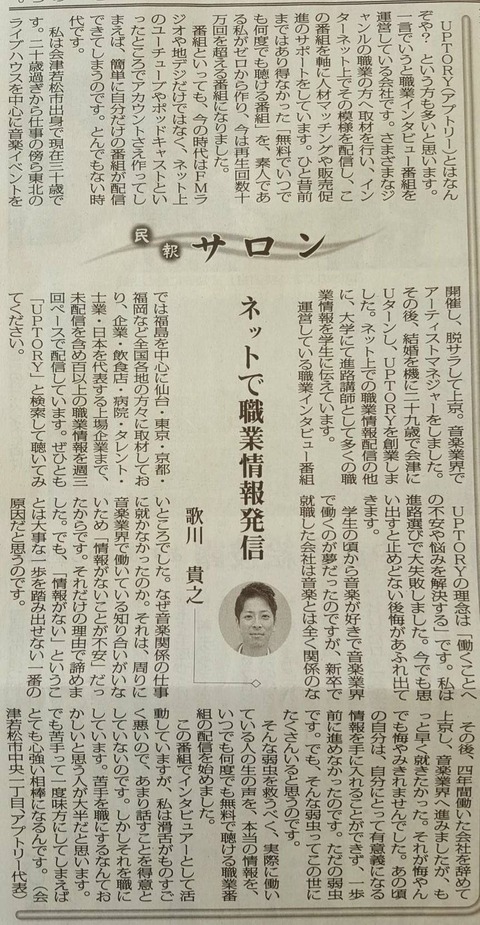 UPTORY(アプトリー)とはなん
ぞや？ という方も多いと思います。
一言でいうと職業インタビュー番組を
運営している会社です。さまざまなジ
ャンルの職業の方へ取材を行い、イン
ターネット上でその模様を配信し、こ
の番組を軸に人材マッチングや販売促
進のサポートをしています。ひと昔前
まではあり得なかった「無料でいつで
も何度でも聴ける番組」を、素人であ
る私がゼロから作り、今は再生回数十
万回を超える番組になりました。
番組といっても、今の時代はFMラ
ジオや地デジだけではなく、ネット上
のユーチューブやポッドキャストとい
ったところでアカウントさえ作ってし
まえば、簡単に自分だけの番組が配信
できてしまうのです。とんでもない時
代です。
私は会津若松市出身で現在三十歳で
す。二十歳過ぎから仕事の傍ら東北の
ライブハウスを中心に音楽イベントを
民報サロン
開催し、脱サラして上京。音楽業界で
アーティストマネジャーをしました。
その後、結婚を機に二十九歳で会津に
Uターンし、UPTORYを創業しま
した。ネット上での職業情報配信の他
に、大学にて進路講師として多くの職
業情報を学生に伝えています。
運営している職業インタビュー番組
ネットで職業情報発信
歌川 貴之
では福島を中心に仙台・東京・京都・
福岡など全国各地の方々に取材してお
り、企業・飲食店・病院・タレント・
士業・日本を代表する上場企業まで、
未配信を含め百以上の職業情報を週三
回ペースで配信しています。ぜひとも
「UPTORY」と検索して聴いてみ
てください。
UPTORYの理念は「働くことへ
の不安や悩みを解決する」です。私は
進路選びで大失敗しました。今でも思
い出すと止めどない後悔があふれ出て
きます。
学生の頃から音楽が好きで音楽業界
で働くのが夢だったのですが、新卒で
就職した会社は音楽とは全く関係のな
いところでした。なぜ音楽関係の仕事
に就かなかったのか。それは、周りに
音楽業界で働いている知り合いがいな
いため「情報がないことが不安」だっ
たからです。それだけの理由で諦めま
した。でも、「情報がない」というこ
とは大事な一歩を踏み出せない一番の
原因だと思うのです。
その後、四年間働いた会社を辞めて
上京し、音楽業界へ進みましたが、も
っと早く就きたかった。それが悔やん
でも悔やみきれませんでした。あの頃
の自分は、自分にとって有意義になる
情報を手に入れることができず、一歩
前に進めなかったのです。ただの弱虫
です。でも、そんな弱虫ってこの世に
たくさんいると思うのです。
そんな弱虫を救うべく、実際に働い
ている人の生の声を、本当の情報を、
いつでも何度でも無料で聴ける職業番
組の配信を始めました。
この番組でインタビュアーとして活
動していますが、私は滑舌がものすご
く悪いので、あまり話すことを得意と
していないのです。しかしそれを職に
しています。苦手を職にするなんてお
かしいと思う人が大半だと思います。
でも苦手って一度味方にしてしまえば
とても心強い相棒になるんです。（会
津若松市中央一丁目、アプトリー代表）